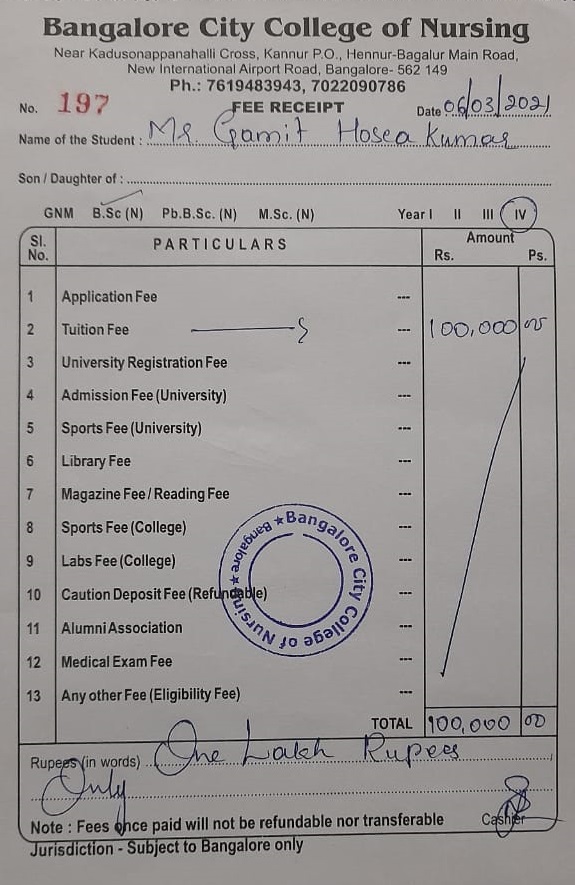 Bangalore City College of Nursing
Near Kadusonappanahalli Cross, Kannur P.O., Hennur-Bagalur Main Road,
New International Airport Road, Bangalore- 562 149
Ph.: 7619483943, 7022090786
No. 197 FEE RECEIPT Date 06/03/2021
Name of the Student : Mr Gamit Hosea Kumar
Son / Daughter of :
GNM B.Sc (N) Pb.B.Sc. (N) M.Sc. (N) Year I II III IV
Sl. No. PARTICULARS Amount Rs. Ps.
1 Application Fee ---
2 Tuition Fee --- 100,000 00
3 University Registration Fee ---
4 Admission Fee (University) ---
5 Sports Fee (University) ---
6 Library Fee ---
7 Magazine Fee / Reading Fee ---
8 Sports Fee (College) ---
9 Labs Fee (College) ---
10 Caution Deposit Fee (Refundable) ---
11 Alumni Association ---
12 Medical Exam Fee ---
13 Any other Fee (Eligibility Fee) ---
Bangalore City College of Nursing ★ Bangalore ★
TOTAL 100,000 00
Rupees (in words) One Lakh Rupees
Only
Note : Fees once paid will not be refundable nor transferable Cashier
Jurisdiction - Subject to Bangalore only